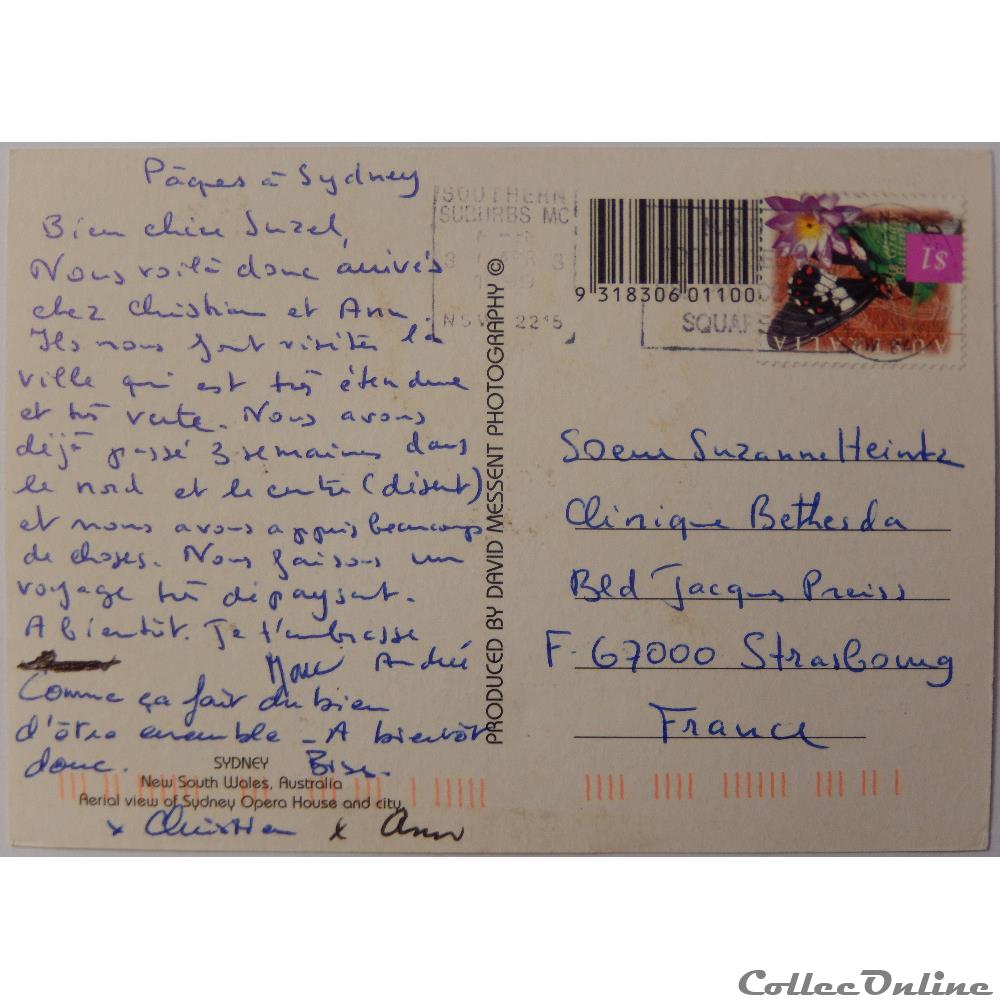 Pâques à Sydney
Bien chère Suzel,
Nous voilà donc arrivés
chez Christian et Ann.
Ils nous font visiter la
ville qui est très étendue
et très verte. Nous avons
déjà passé 3 semaines dans
le nord et le centre (désert)
et nous avons appris beaucoup
de choses. Nous faisons un
voyage très dépaysant.
A bientôt. Je t'embrasse
André
Comme ça fait du bien
d'être ensemble - A bientôt
donc. Bise.
SYDNEY
New South Wales, Australia
Aerial view of Sydney Opera House and city
x Christian x Ann
PRODUCED BY DAVID MESSENT PHOTOGRAPHY ©
SOUTHERN
SUBURBS MC
NSW 2215
9 318306 01100
SQUARE
$1
AUSTRALIA
Soeur Suzanne Heintz
Clinique Bethesda
Bld Jacques Preiss
F-67000 Strasbourg
France
CollecOnline